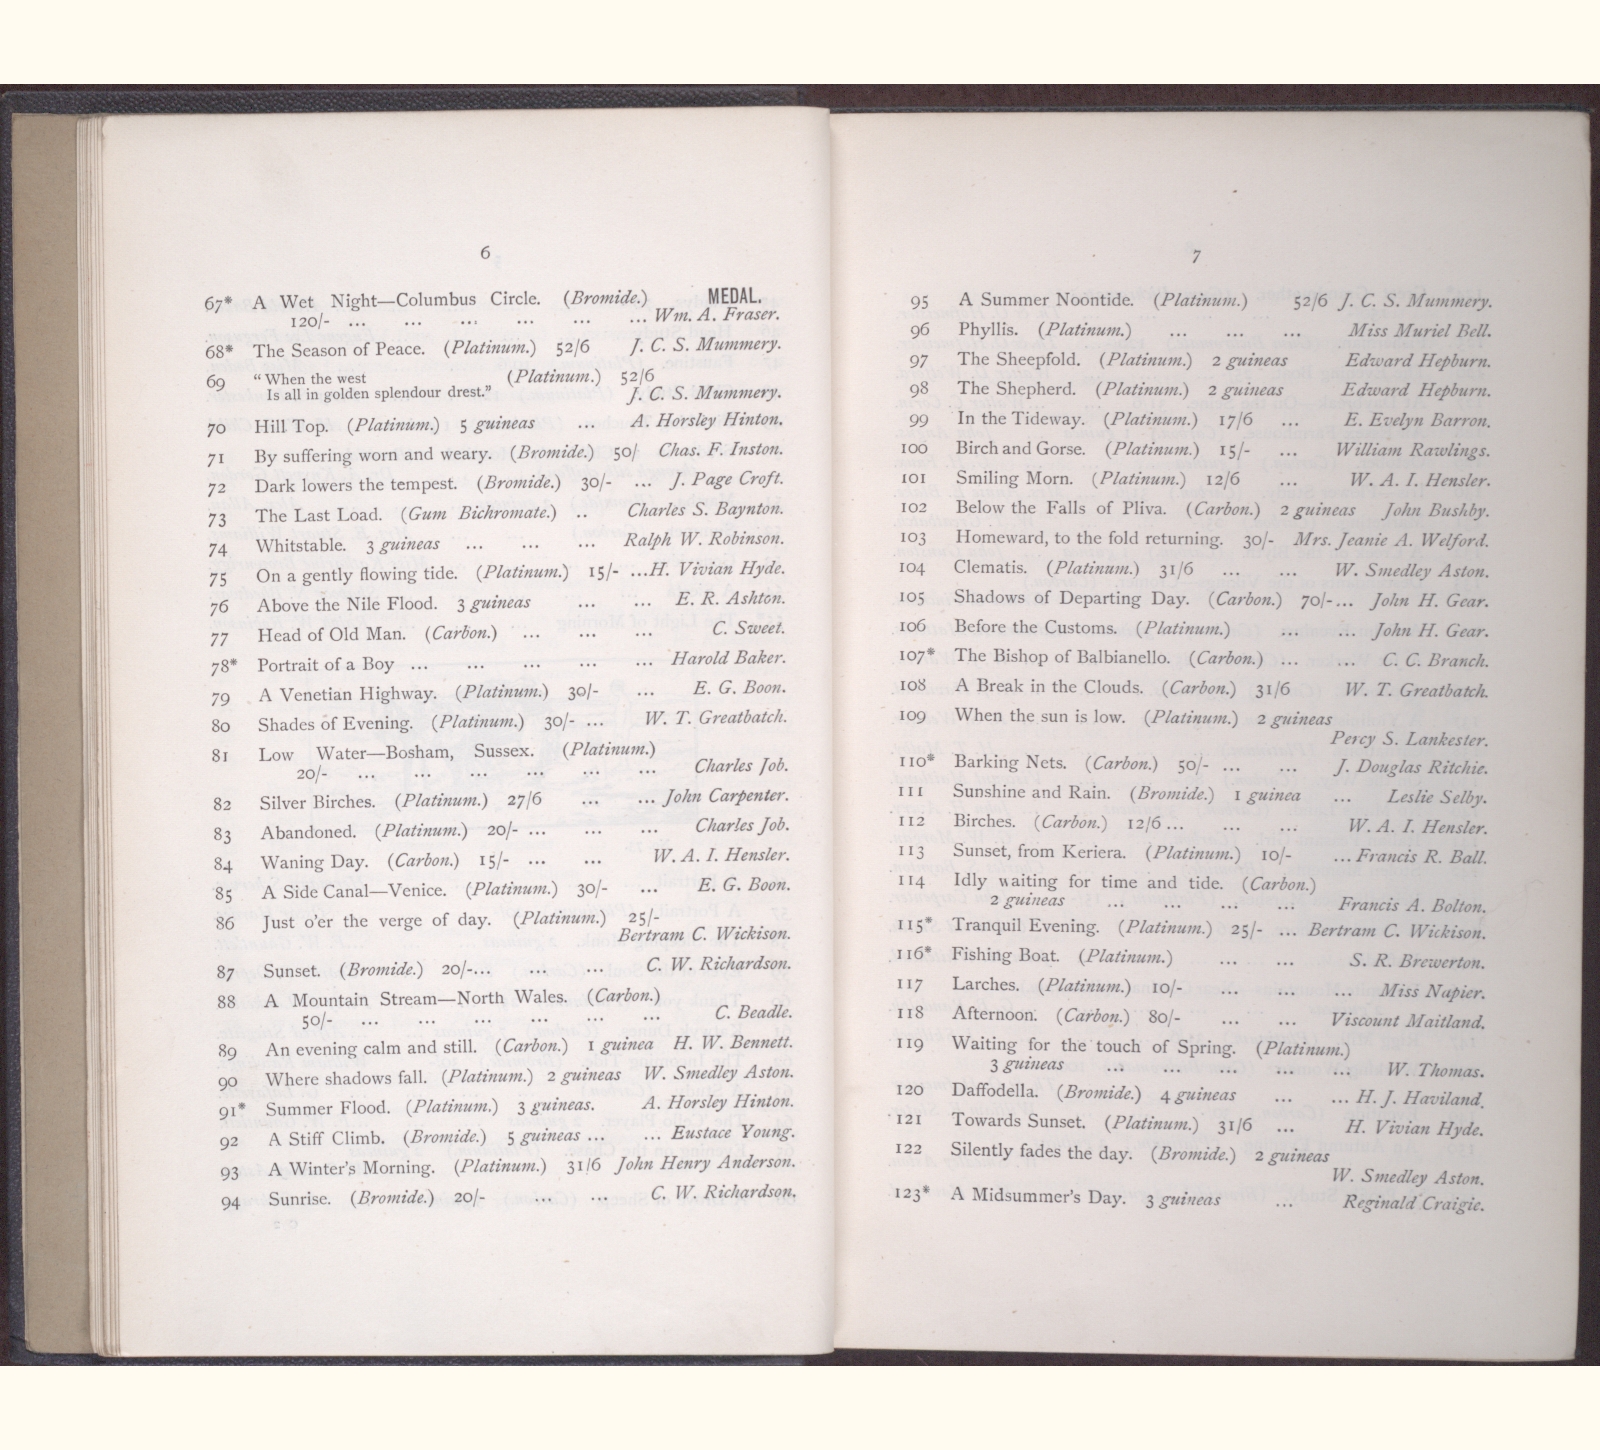 6
67* A Wet Night—Columbus Circle. (Bromide.) MEDAL.
120/- ... ... ... ... ... ... Wm. A. Fraser.
68* The Season of Peace. (Platinum.) 52/6 J. C. S. Mummery.
69 "When the west (Platinum.) 52/6
Is all in golden splendour drest." J. C. S. Mummery.
70 Hill Top. (Platinum.) 5 guineas ... A. Horsley Hinton.
71 By suffering worn and weary. (Bromide.) 50/ Chas. F. Inston.
72 Dark lowers the tempest. (Bromide.) 30/- ... J. Page Croft.
73 The Last Load. (Gum Bichromate.) .. Charles S. Baynton.
74 Whitstable. 3 guineas ... ... ... Ralph W. Robinson.
75 On a gently flowing tide. (Platinum.) 15/- ...H. Vivian Hyde.
76 Above the Nile Flood. 3 guineas ... ... E. R. Ashton.
77 Head of Old Man. (Carbon.) ... ... ... C. Sweet.
78* Portrait of a Boy ... ... ... ... ... Harold Baker.
79 A Venetian Highway. (Platinum.) 30/- ... E. G. Boon.
80 Shades of Evening. (Platinum.) 30/- ... W. T. Greatbatch.
81 Low Water—Bosham, Sussex. (Platinum.)
20/- ... ... ... ... ... ... Charles Job.
82 Silver Birches. (Platinum.) 27/6 ... ... John Carpenter.
83 Abandoned. (Platinum.) 20/- ... ... ... Charles Job.
84 Waning Day. (Carbon.) 15/- ... ... W. A. I. Hensler.
85 A Side Canal—Venice. (Platinum.) 30/- ... E. G. Boon.
86 Just o'er the verge of day. (Platinum.) 25/-
Bertram C. Wickison.
87 Sunset. (Bromide.) 20/-... ... ... C. W. Richardson.
88 A Mountain Stream—North Wales. (Carbon.)
50/- ... ... ... ... ... ... C. Beadle.
89 An evening calm and still. (Carbon.) 1 guinea H. W. Bennett.
90 Where shadows fall. (Platinum.) 2 guineas W. Smedley Aston.
91* Summer Flood. (Platinum.) 3 guineas. A. Horsley Hinton.
92 A Stiff Climb. (Bromide.) 5 guineas ... ... Eustace Young.
93 A Winter's Morning. (Platinum.) 31/6 John Henry Anderson.
94 Sunrise. (Bromide.) 20/- ... ... C. W. Richardson.
7
95 A Summer Noontide. (Platinum.) 52/6 J. C. S. Mummery.
96 Phyllis. (Platinum.) ... ... ... Miss Muriel Bell.
97 The Sheepfold. (Platinum.) 2 guineas Edward Hepburn.
98 The Shepherd. (Platinum.) 2 guineas Edward Hepburn.
99 In the Tideway. (Platinum.) 17/6 ... E. Evelyn Barron.
100 Birch and Gorse. (Platinum.) 15/- ... William Rawlings.
101 Smiling Morn. (Platinum.) 12/6 ... W. A. I. Hensler.
102 Below the Falls of Pliva. (Carbon.) 2 guineas John Bushby.
103 Homeward, to the fold returning. 30/- Mrs. Jeanie A. Welford.
104 Clematis. (Platinum.) 31/6 ... ... W. Smedley Aston.
105 Shadows of Departing Day. (Carbon.) 70/-... John H. Gear.
106 Before the Customs. (Platinum.) ... ... John H. Gear.
107* The Bishop of Balbianello. (Carbon.) ... ... C. C. Branch.
108 A Break in the Clouds. (Carbon.) 31/6 W. T. Greatbatch.
109 When the sun is low. (Platinum.) 2 guineas
Percy S. Lankester.
110* Barking Nets. (Carbon.) 50/- ... ... J. Douglas Ritchie.
111 Sunshine and Rain. (Bromide.) 1 guinea ... Leslie Selby.
112 Birches. (Carbon.) 12/6 ... ... ... W. A. I. Hensler.
113 Sunset, from Keriera. (Platinum.) 10/- ... Francis R. Ball.
114 Idly waiting for time and tide. (Carbon.)
2 guineas ... ... ... ... Francis A. Bolton.
115* Tranquil Evening. (Platinum.) 25/- ... Bertram C. Wickison.
116* Fishing Boat. (Platinum.) ... ... S. R. Brewerton.
117 Larches. (Platinum.) 10/- ... ... ... Miss Napier.
118 Afternoon. (Carbon.) 80/- ... ... Viscount Maitland.
119 Waiting for the touch of Spring. (Platinum.)
3 guineas ... ... ... ... ... W. Thomas.
120 Daffodella. (Bromide.) 4 guineas ... ... H. J. Haviland.
121 Towards Sunset. (Platinum.) 31/6 ... H. Vivian Hyde.
122 Silently fades the day. (Bromide.) 2 guineas
W. Smedley Aston.
123* A Midsummer's Day. 3 guineas ... Reginald Craigie.